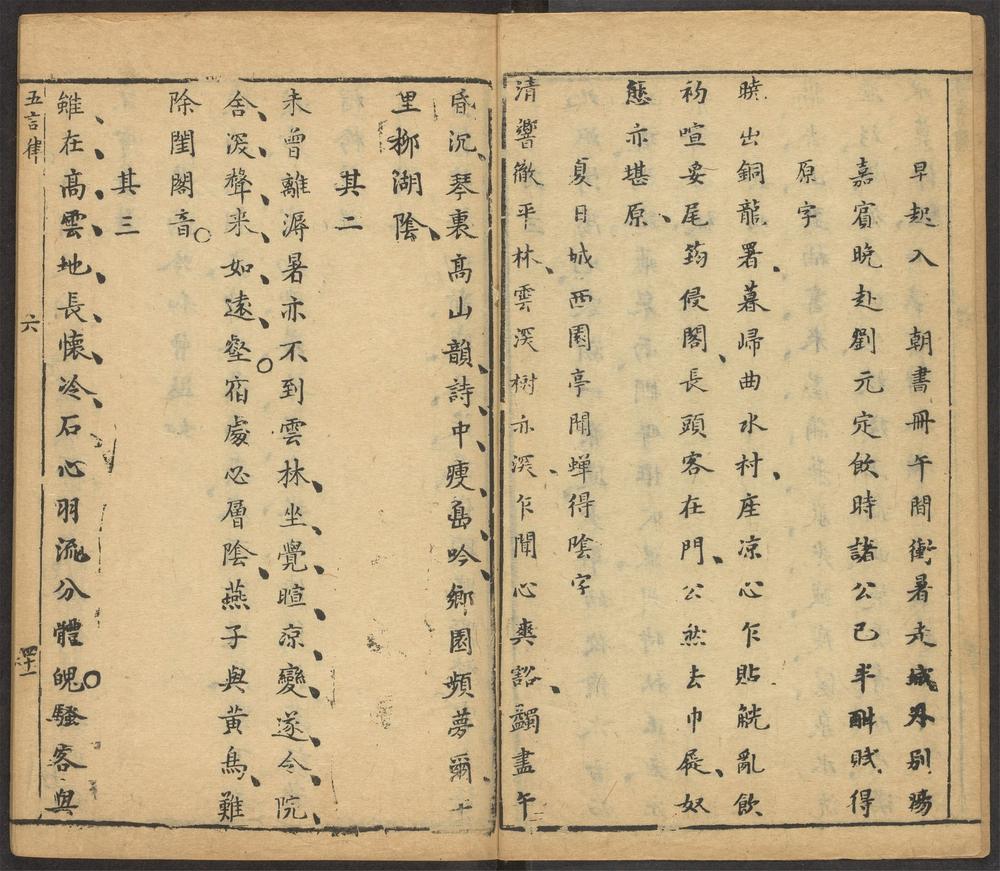 早起入　朝書冊午間衝暑走城外別陽
嘉賔晚赴劉元定飲時諸公已半酣賦得
原字
曉出銅龍署暮歸曲水村座凉心乍貼觥亂飲
礿喧妥尾筠侵閣長頭客在門公然去巾屐奴
態亦堪原
夏日城西園亭聞蟬得陰字
清響徹平林雲深樹亦深乍聞心爽豁蠲盡午
昏沉琴裏高山韻詩中瘦島吟鄉園頻夢爾十
里柳湖陰
其二
未曾離溽暑亦不到雲林坐覺暄凉變遂令院
舍深聲来如遠壑宿處必層陰燕子與黃鳥難
除閨閣音
其三
雖在高雲地長懷冷石心羽流分體魄騷客與
五言律　六